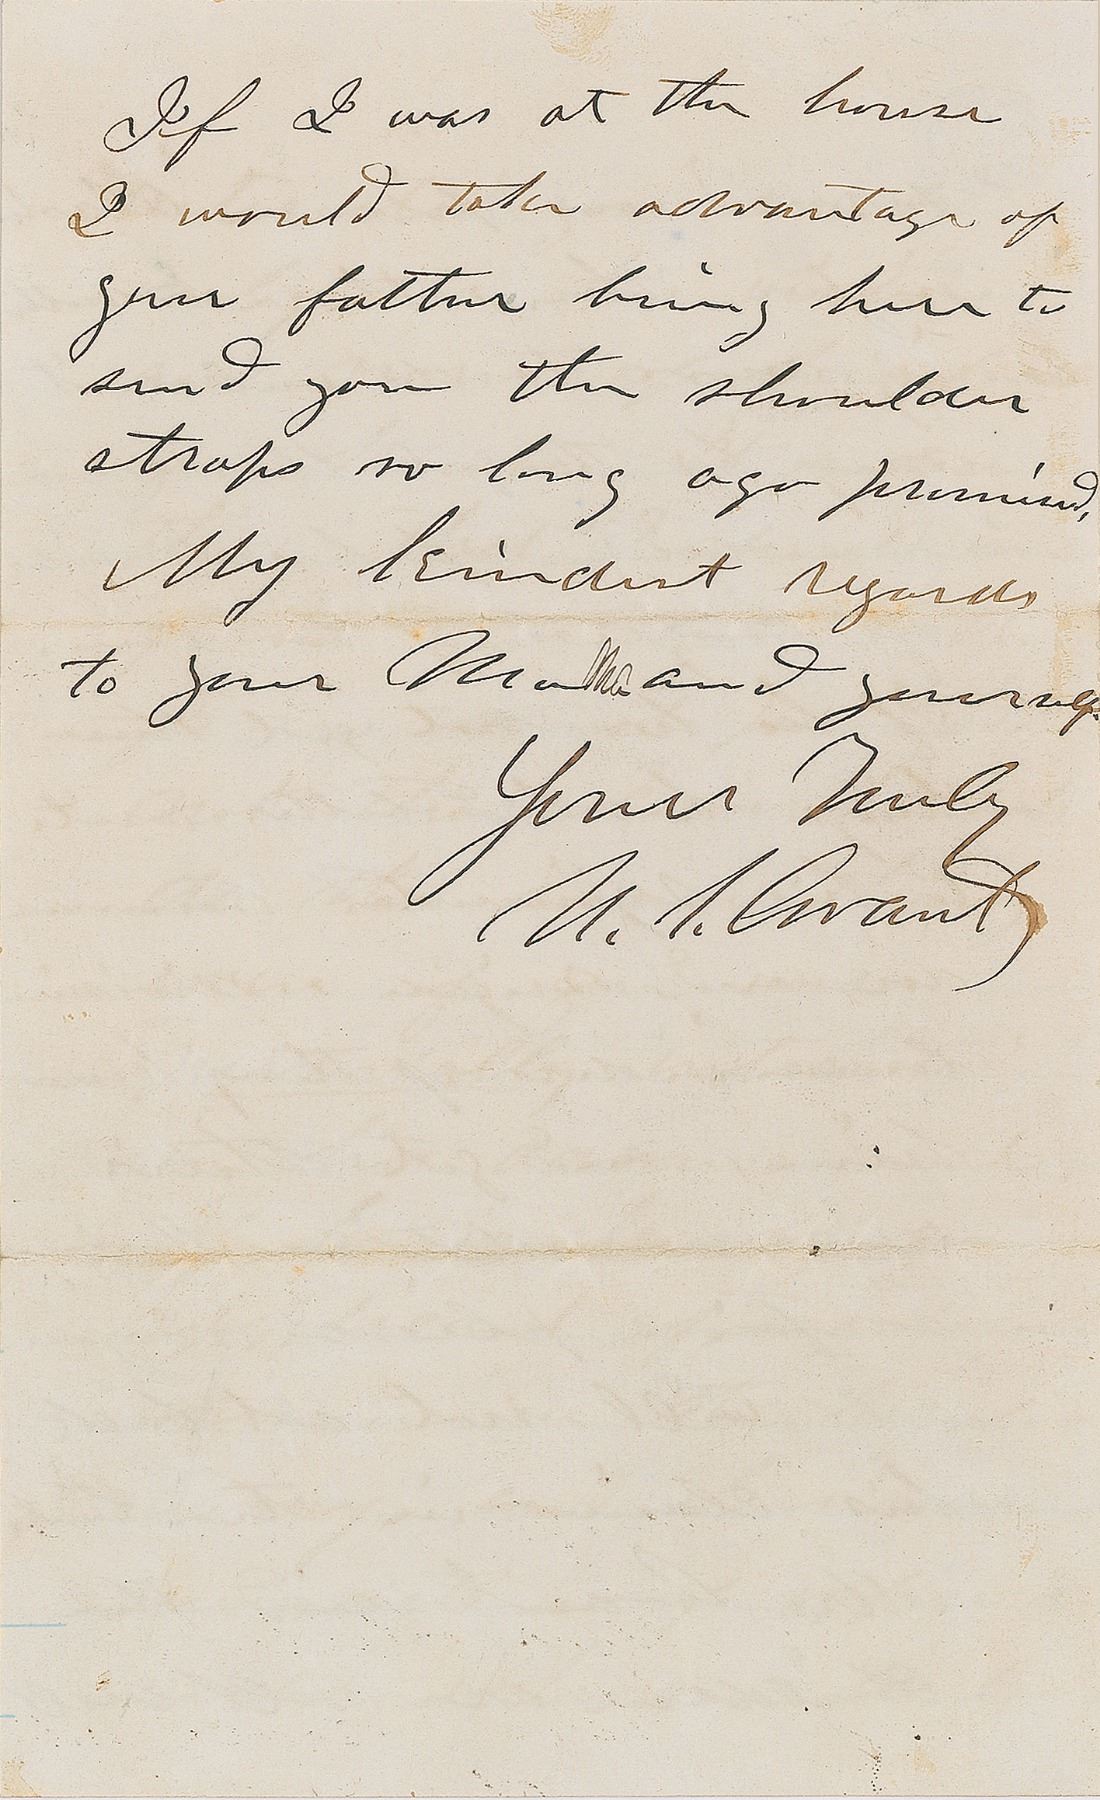 If I was at the house
I would take advantage of
your father being here to
send you the shoulder
straps so long ago promised,
My kindest regards
to your Ma and yourself.
Yours Truly
U. S. Grant